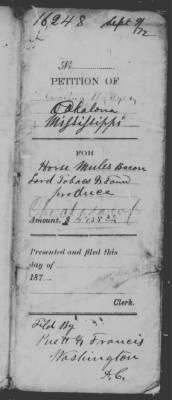 16248 Sept 9/72
No.
PETITION OF
Okalona
Mississippi
FOR
Horse Mules Bacon
Lard Tobaco & Farm
produce
Amount, $
Presented and filed this
day of
187
Clerk.
Fild By
& Francis
Washington
D.C.